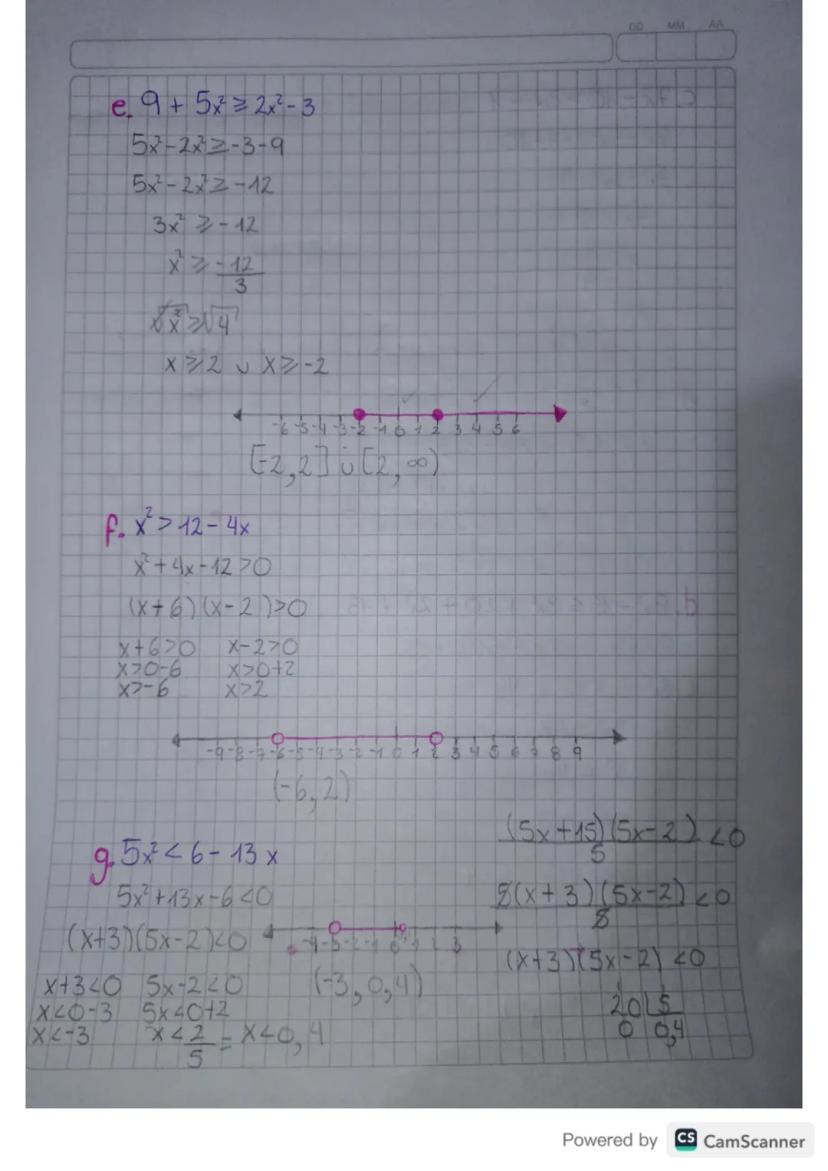 DD MM AA
e. 9 + 5x² ≥ 2x² - 3
5x² - 2x² ≥ -3 - 9
5x² - 2x² ≥ -12
3x² ≥ -12
x² ≥ -12/3
√x² ≥ √4
x ≥ 2 ∪ x ≥ -2
-6 -5 -4 -3 -2 -1 0 1 2 3 4 5 6
[-2, 2] ∪ [2, ∞)
f. x² > 12 - 4x
x² + 4x - 12 > 0
(x+6)(x-2) > 0
x+6>0 x-2>0
x>0-6 x>0+2
x>-6 x>2
-9 -8 -7 -6 -5 -4 -3 -2 -1 0 1 2 3 4 5 6 7 8 9
(-6, 2)
g. 5x² < 6 - 13x
5x² + 13x - 6 < 0
(x+3)(5x-2) < 0
x+3<0 5x-2<0
x<0-3 5x<0+2
x<-3 x<2/5 = x<0,4
-4 -3 -2 -1 0 1 2 3
(-3, 0,4)
(5x+15)(5x-2)/5 < 0
5(x+3)(5x-2)/5 < 0
(x+3)(5x-2) < 0
20 5
0 0,4
Powered by CS CamScanner